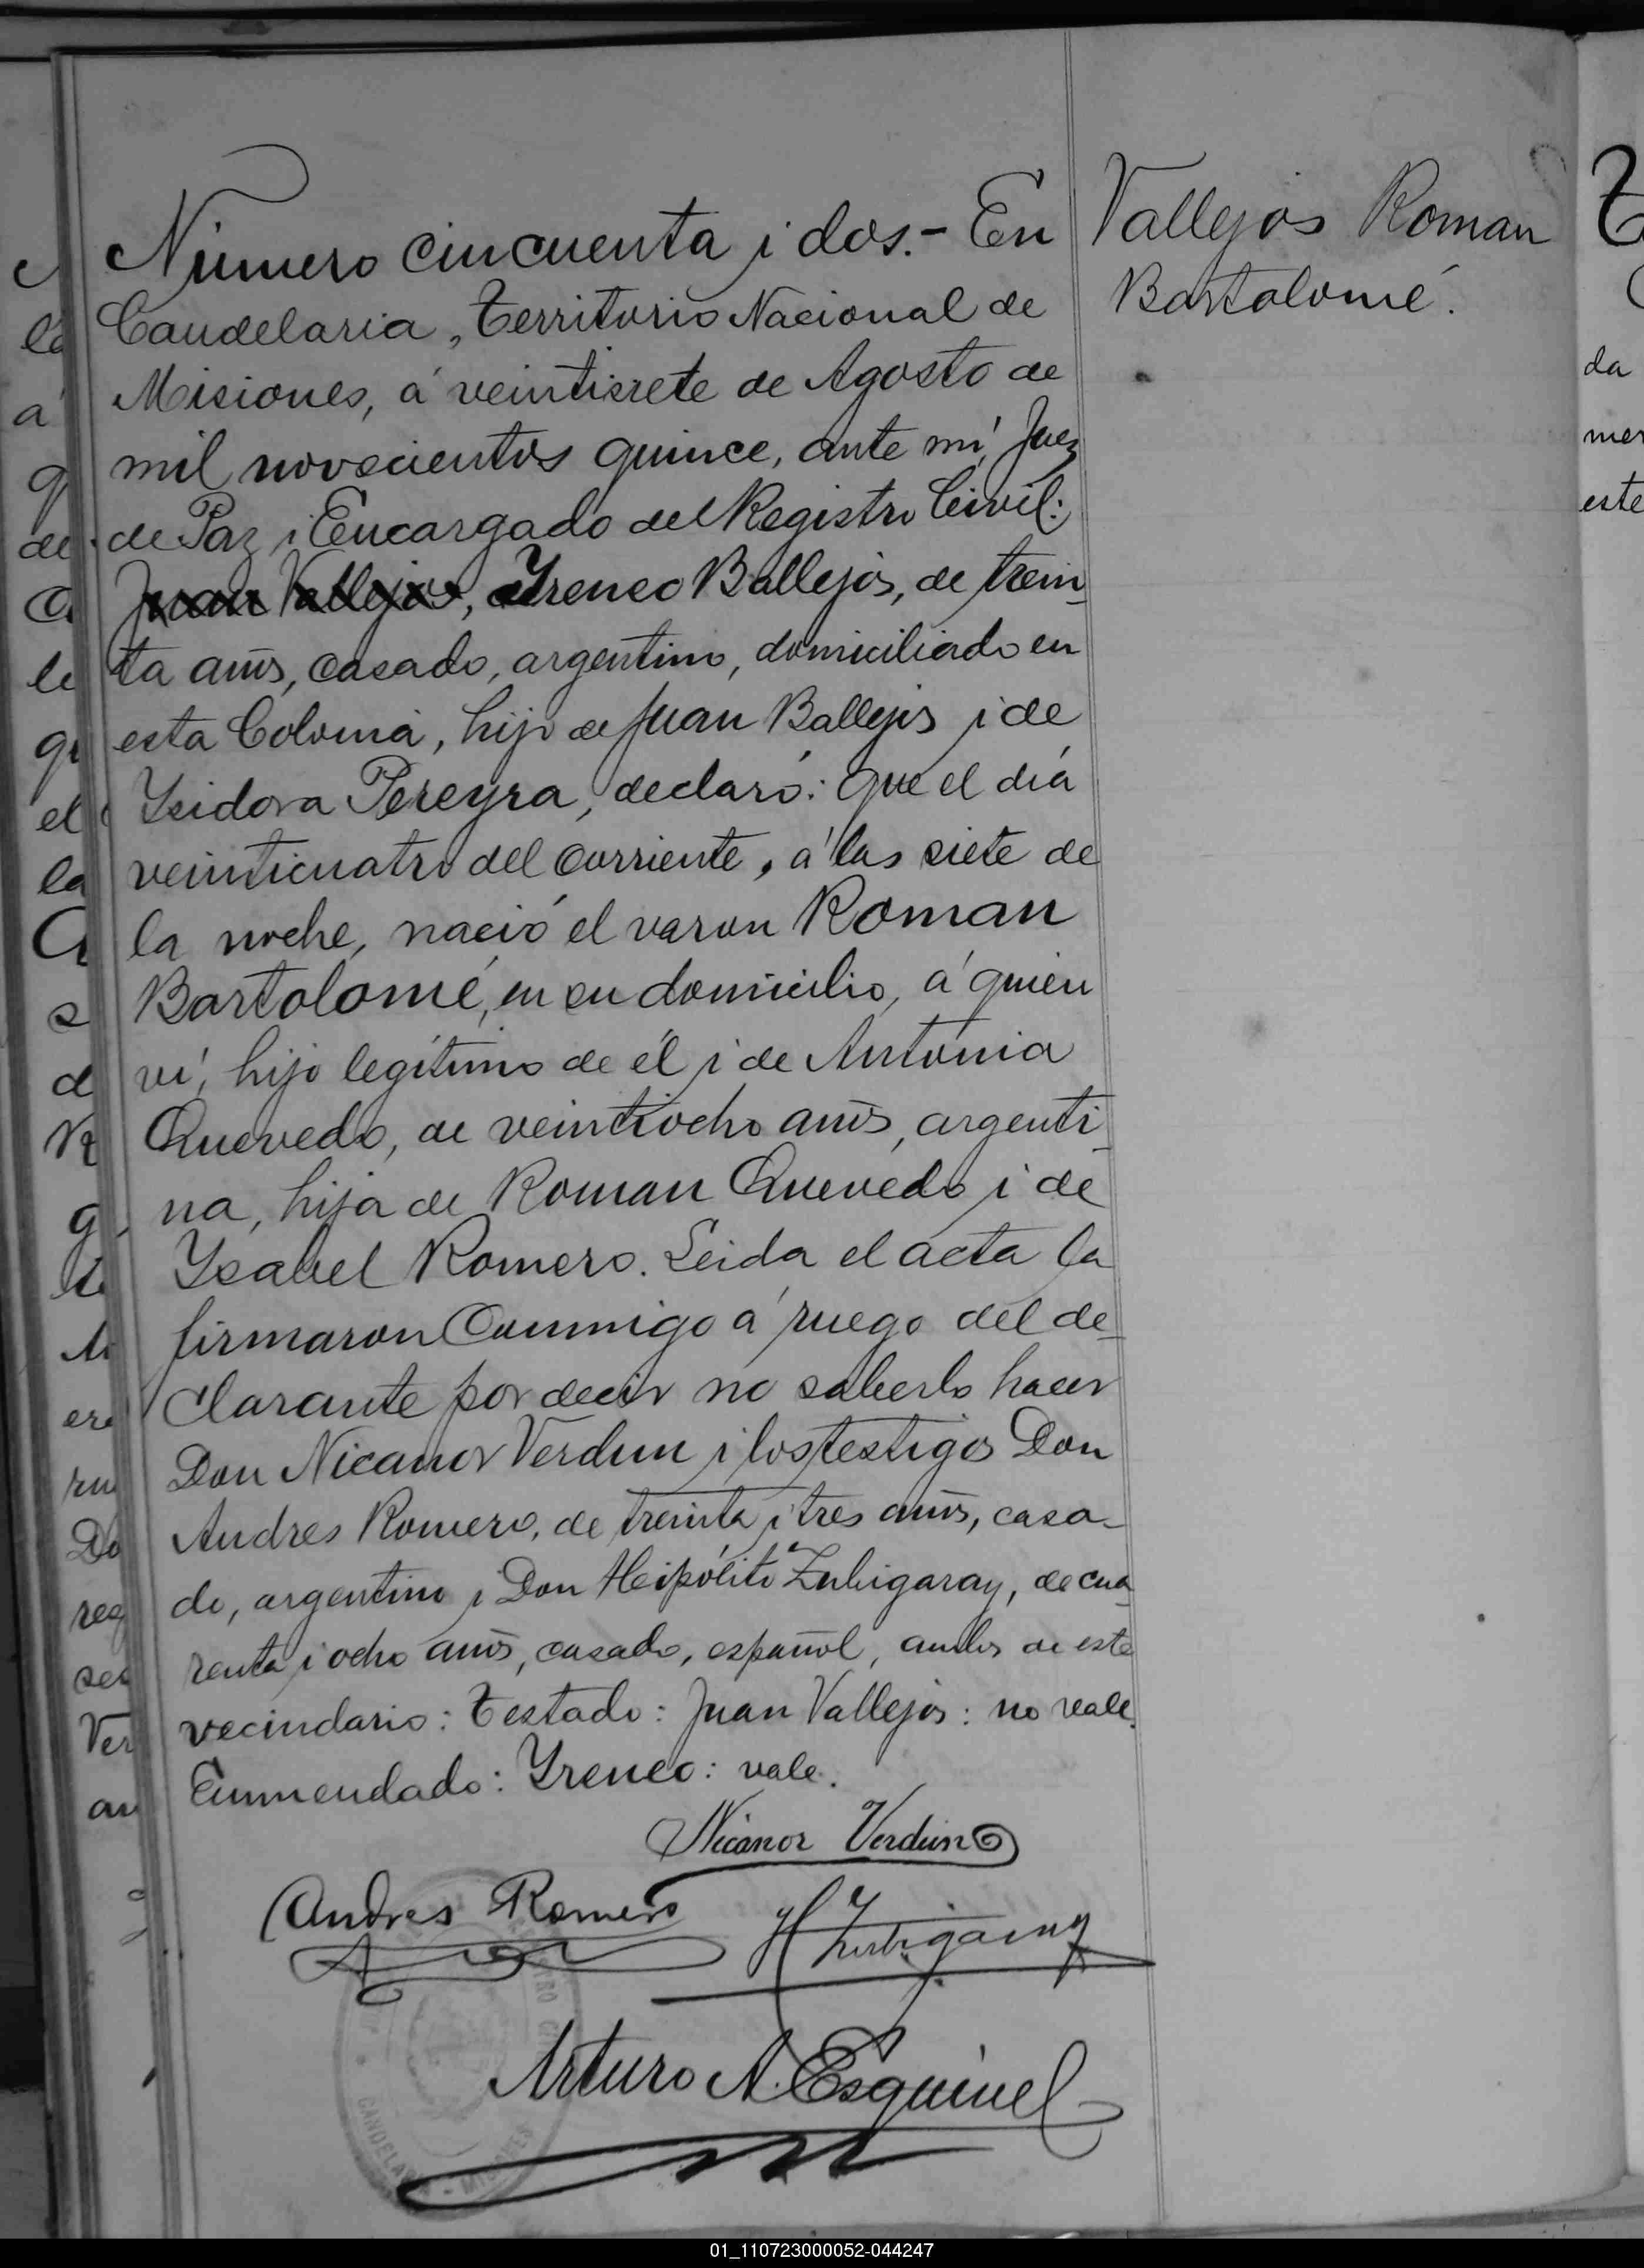 Número cincuenta i dos.- En
Candelaria, Territorio Nacional de
Misiones, á veintisiete de Agosto de
mil novecientos quince, ante mí, Juez
de Paz i Encargado del Registro Civil:
Juan Vallejos, Yreneo Ballejos, de trein-
ta años, casado, argentino, domiciliado en
esta Colonia, hijo de Juan Ballejos i de
Ysidora Pereyra, declaró: Que el día
veinticuatro del corriente, á las siete de
la noche, nació el varon Roman
Bartolomé, en su domicilio, á quien
ví, hijo legítimo de él i de Antonia
Quevedo, de veintiocho años, argenti-
na, hija de Roman Quevedo i de
Ysabel Romero. Leida el acta la
firmaron Conmigo á ruego del de-
clarante por decir no saberlo hacer
Don Nicanor Verdun i los testigos Don
Andres Romero, de treinta i tres años, casa-
do, argentino i Don Heipólito Zubigaray, de cua-
renta i ocho años, casado, español, ambos de este
vecindario: Testado: Juan Vallejos: no vale.
Enmendado: Yreneo: vale.
Nicanor Verdun
Andres Romero
H Zubigaray
Arturo A. Esquivel
Vallejos Roman
Bartolomé.
CANDELARIA - MISIONES
da
mer
este
01_110723000052-044247